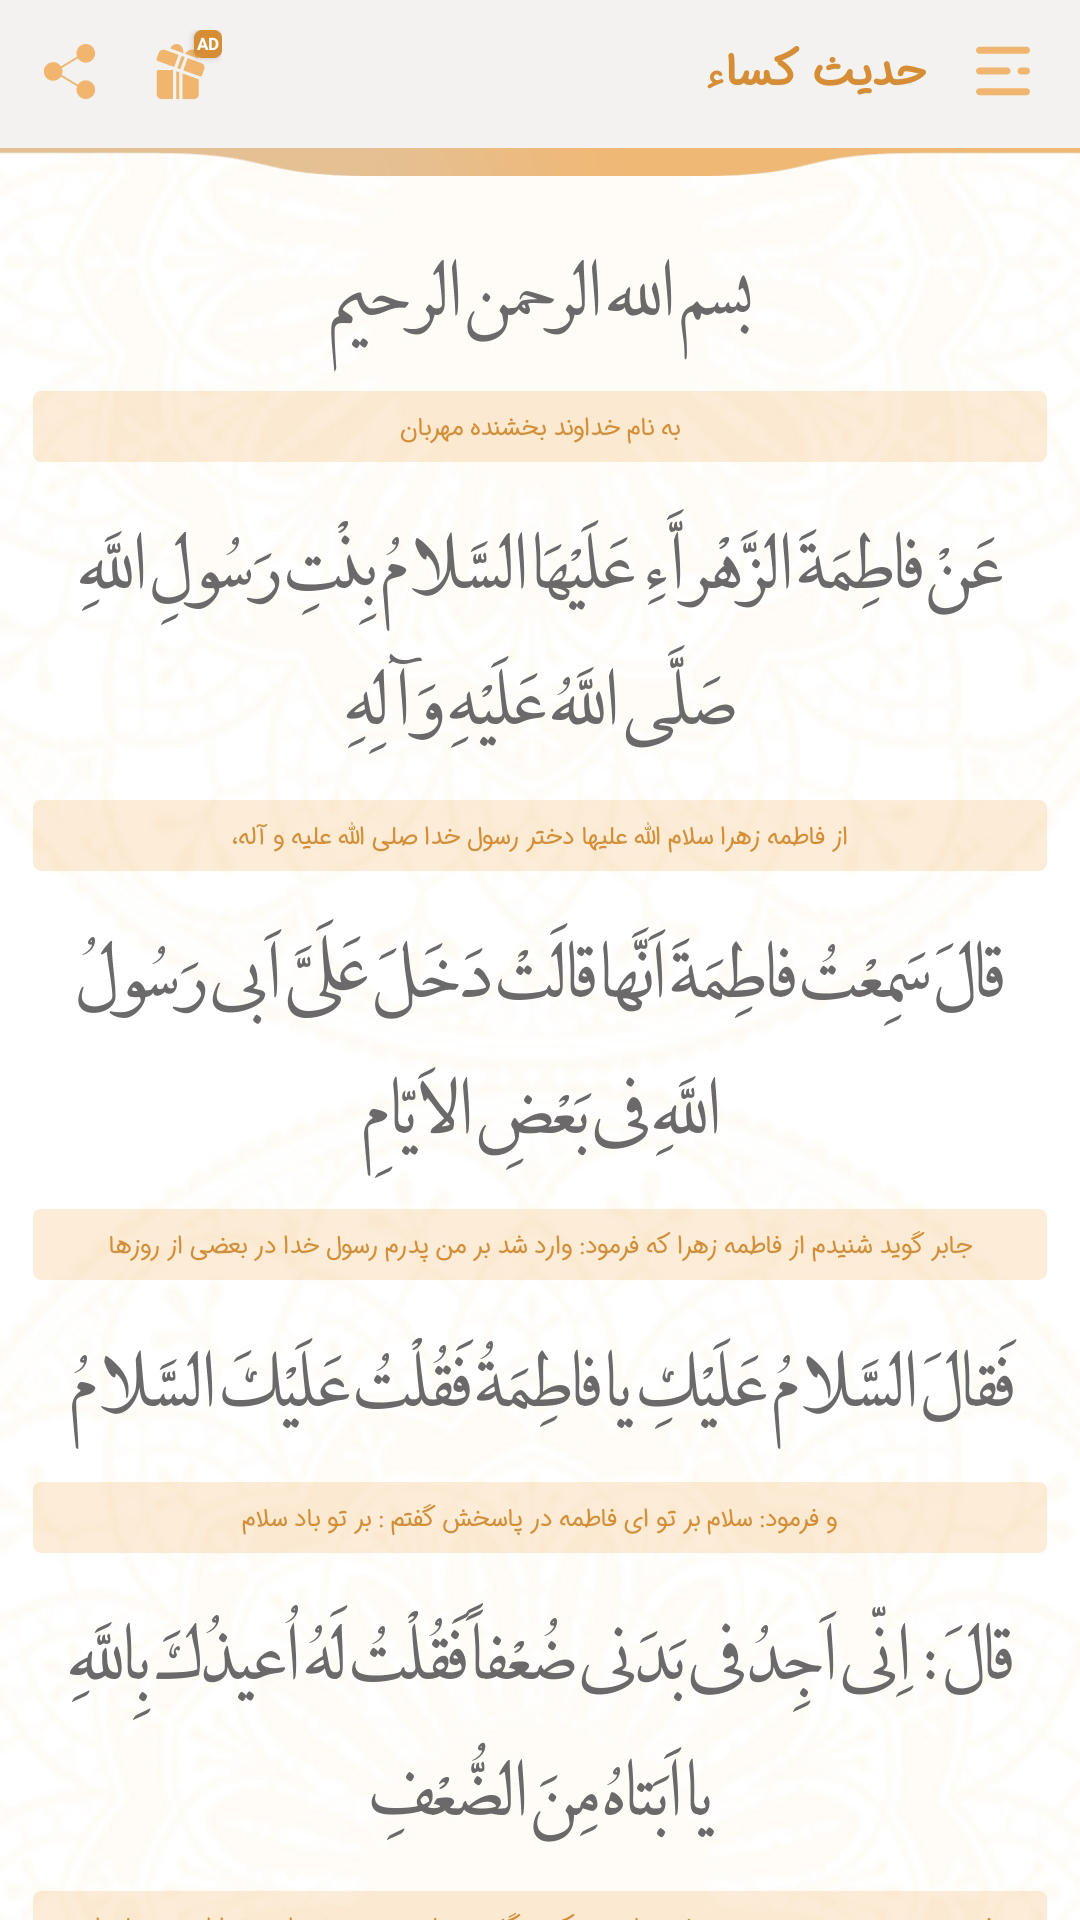 حدیث کساء
AD
بسم الله الرحمن الرحیم
به نام خداوند بخشنده مهربان
عَنْ فاطِمَةَ الزَّهْراَّءِ عَلَیْهَا السَّلامُ بِنْتِ رَسُولِ اللَّهِ
صَلَّى اللَّهُ عَلَیْهِ وَ آلِهِ
از فاطمه زهرا سلام الله علیها دختر رسول خدا صلی الله علیه و آله،
قالَ سَمِعْتُ فاطِمَةَ اَنَّها قالَتْ دَخَلَ عَلَىَّ اَبى رَسُولُ
اللَّهِ فى بَعْضِ الاَیّامِ
جابر گوید شنیدم از فاطمه زهرا که فرمود: وارد شد بر من پدرم رسول خدا در بعضی از روزها
فَقالَ السَّلامُ عَلَیْكِ یا فاطِمَةُ فَقُلْتُ عَلَیْكَ السَّلامُ
و فرمود: سلام بر تو ای فاطمه در پاسخش گفتم : بر تو باد سلام
قالَ: اِنّى اَجِدُ فى بَدَنى ضُعْفاً فَقُلْتُ لَهُ اُعیذُكَ بِاللَّهِ
یا اَبَتاهُ مِنَ الضُّعْفِ